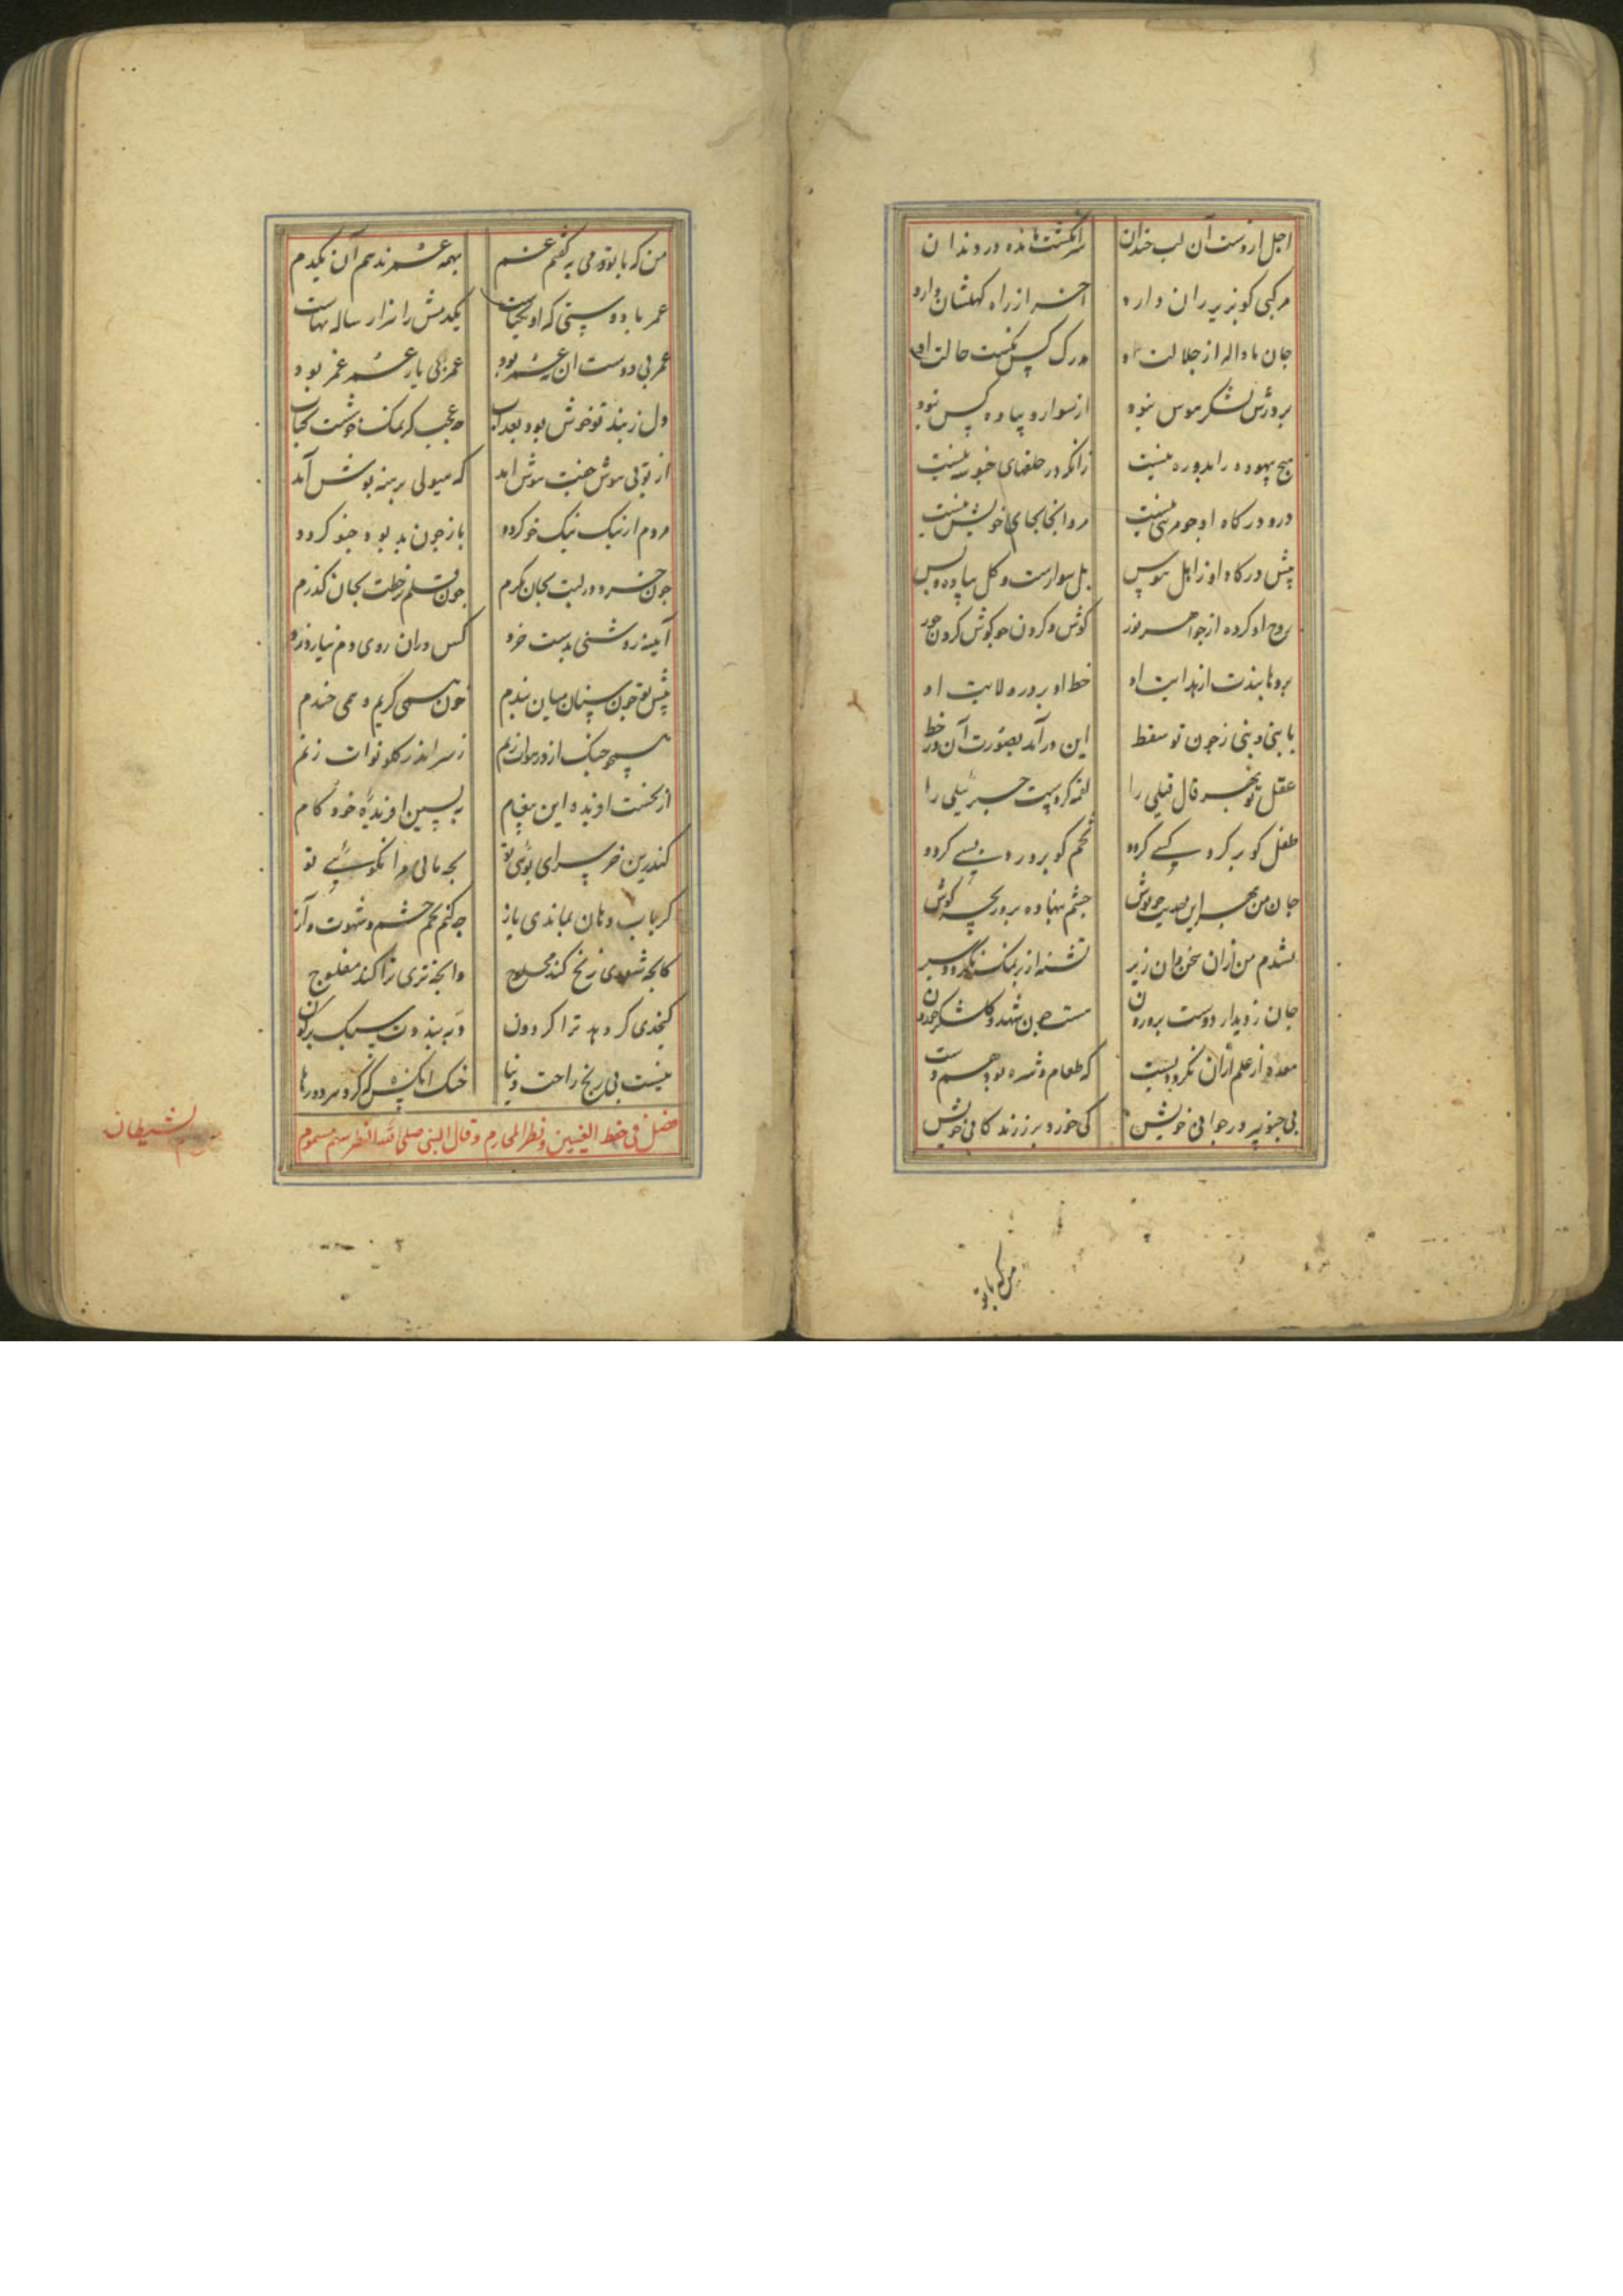 اجل ار وست آن لب خندان سر انگشت مانده در دندان
مرکبی کو بزیر ران دارد آخر از راه کهکشان دارد
جان ما واله از جلالت او مدرک کس نگشت حالت او
بر درش لشکر هوس نبود از سوار و پیاده کس نبود
هیچ بیهوده را بدو ره نیست زانکه در حلقهای
درد درگاه او جو مرهمی نیست مرو آنجا بجای خویش نیست
پیش درگاه او ز اهل هوس بل سوارست و کل پیاده و بس
روح او کرده از جواهر نور گوش و گردن جو گوش و گردن حور
بدایت او خط او بر در ولایت او
با بنی و بنی ز جون تو سقط این درآمد بصورت آن در خط
عقل تو بهر قال قیلی را لقمه کردست جبرئیلی را
طفل کو بر گرد کسی گردد تخم کو پرورد بسی گردد
جان من بهر این حدیث جو نوش جشم بنهاده بر دریچه گوش
نشدم من ازان سخن دان زیر تشنه از بر نمک نگردد سیر
جان ز دیدار دوست پروردن هست جون شهد و گلشکر خوردن
معده از علم ازان نگردد پست که طعام و شره نبود هم دست
بی جنو پیر در جوانی خویش کی خورد بر ز زندگانی خویش
من که با تو
من که با تو دمی به گفتم غم بهمه عمر ندهم آن یکدم
عمر با دوستی که او یکتاست یکدمش را هزار ساله بهاست
عمر بی دوست آن نه عمر بود عمر بی یار عمر غمر بود
دل ز بند تو خوش بود بعذاب جه عجب گر نمک خوشست کباب
از تو بی هوش جفت هوش آمد که هیولی برهنه پوش آمد
مردم از نیک نیک خو گردد باز جون بد بود جنو گردد
جون خرد در لبت بجان نگرم جون قلم زخطت بجان گذرم
آینه روشنی بدست خرد کس در آن روی دم نیارد زد
پیش تو جون سنان میان بندم خون همی گریم و همی خندم
همجو جنگ از درون زنم زسر اندر گلو نوات زنم
از نخست آفریده این پیغام به پسین آفریده خرد کام
کندرین خر سرای بوئی تو بجه مانی مرا نگوئی تو
گر بیاب دهان بماندی باز جه کنم تخم خشم و شهوت و آز
کانجه شوری ز رنج کند محلوج وانجه تری ترا کند مفلوج
کنجدی گر دهد ترا گردون دبه بندد سبک بر کون
نیست بی رنج راحت دنیا خنک آنکس که کرد هر دو رها
فصل فی حفظ العینین و نظر المحارم و قال النبی صلی الله النظر سهم مسموم
من سهام الشیطان